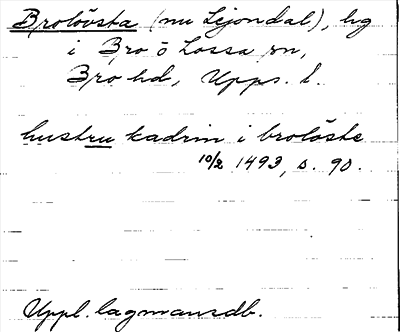 Brolövsta (nu Lejondal), hg
i Bro o Lossa sn,
Bro hd, Upps. l.
hustru kadrin i brolöste
10/2 1493, s. 90.
Uppl. lagmansdb.